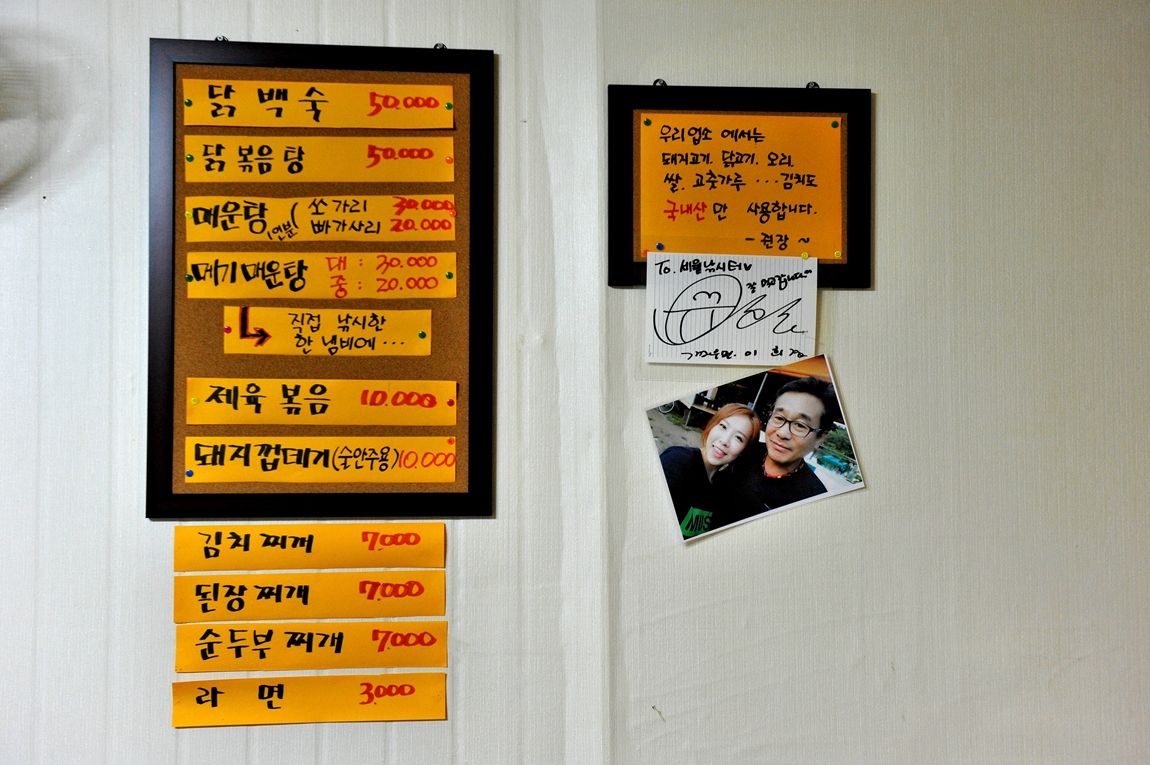 닭 백 숙 50.000
닭 볶음 탕 50.000
매운탕(1인분) 쏘가리 30.000
빠가사리 20.000
메기매운탕 대 : 30.000
중 : 20.000
직접 낚시한
한 냄비에 ...
제육 볶음 10.000
돼지껍데기(술안주용) 10.000
김치 찌개 7.000
된장 찌개 7.000
순두부 찌개 7.000
라 면 3.000
우리업소 에서는
돼지고기. 닭고기. 오리.
쌀. 고춧가루 ...김치도
국내산 만 사용합니다.
- 쥔장 ~
To. 세월낚시터
잘 먹고갑니다...
MUS